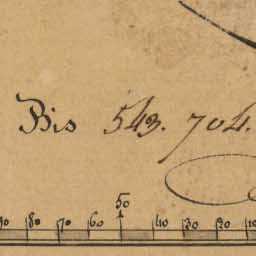 Bis 543. 704.
50
90 80 70 60 40 30 20 10